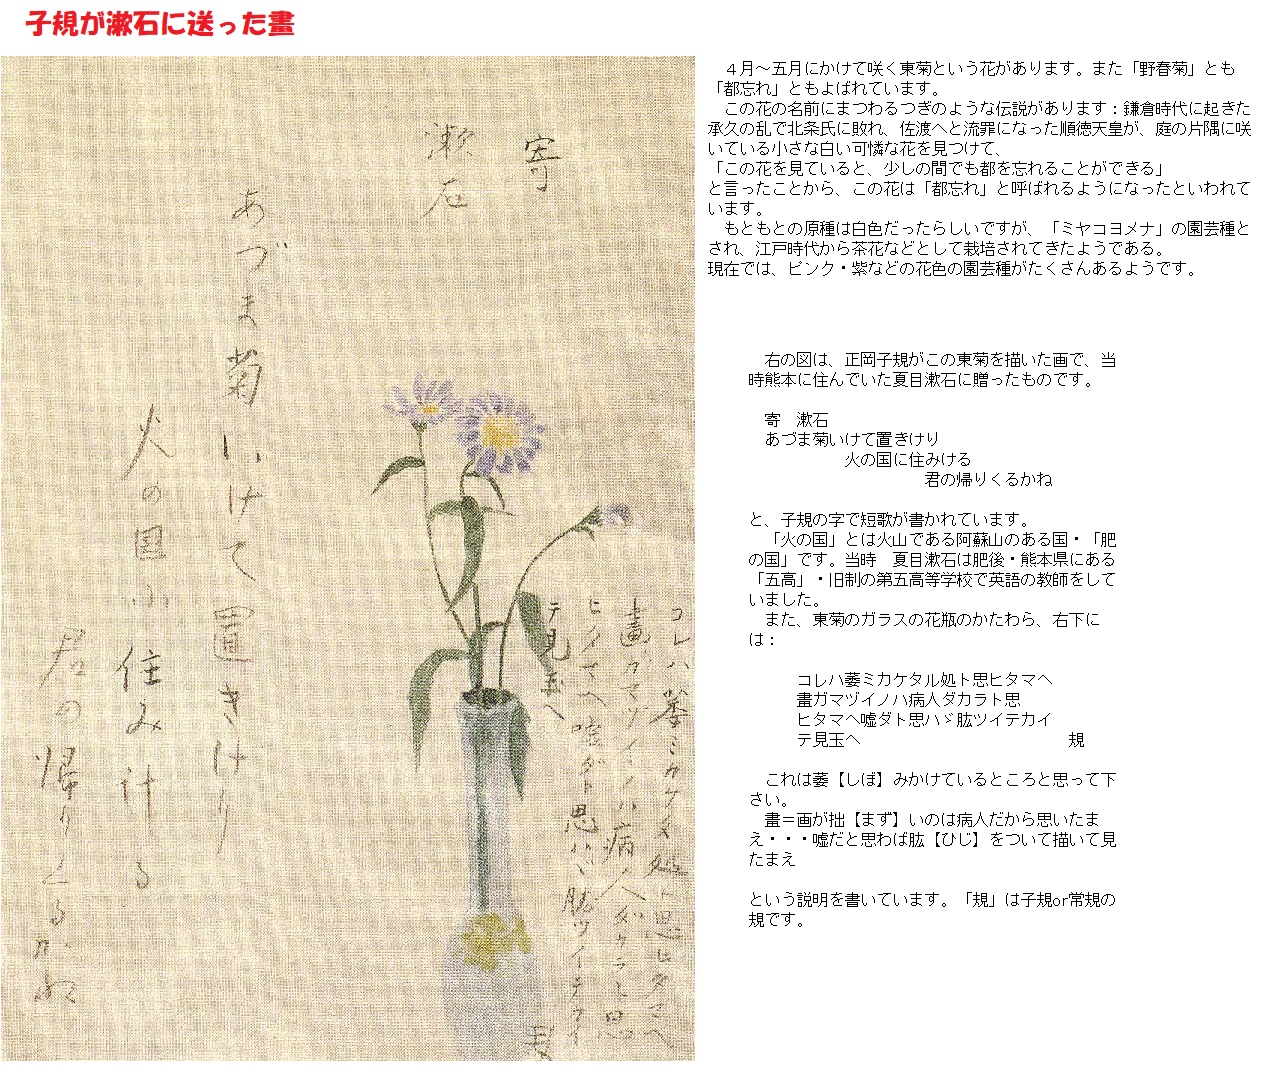 子規が漱石に送った畫
寄
漱石
あづま菊いけて置きけり
火の国に住み計る
君の帰りくるかね
コレハ萎ミカケタル処ト思ヒタマヘ
畫ガマヅイノハ病人ダカラト思
ヒタマヘ嘘ダト思ハヾ肱ツイテカイ
テ見玉ヘ
規
４月～五月にかけて咲く東菊という花があります。また「野春菊」とも
「都忘れ」ともよばれています。
この花の名前にまつわるつぎのような伝説があります：鎌倉時代に起きた
承久の乱で北条氏に敗れ、佐渡へと流罪になった順徳天皇が、庭の片隅に咲
いている小さな白い可憐な花を見つけて、
「この花を見ていると、少しの間でも都を忘れることができる」
と言ったことから、この花は「都忘れ」と呼ばれるようになったといわれて
います。
もともとの原種は白色だったらしいですが、「ミヤコヨメナ」の園芸種と
され、江戸時代から茶花などとして栽培されてきたようである。
現在では、ピンク・紫などの花色の園芸種がたくさんあるようです。
右の図は、正岡子規がこの東菊を描いた画で、当
時熊本に住んでいた夏目漱石に贈ったものです。
寄　漱石
あづま菊いけて置きけり
火の国に住みける
君の帰りくるかね
と、子規の字で短歌が書かれています。
「火の国」とは火山である阿蘇山のある国・「肥
の国」です。当時　夏目漱石は肥後・熊本県にある
「五高」・旧制の第五高等学校で英語の教師をして
いました。
また、東菊のガラスの花瓶のかたわら、右下に
は：
コレハ萎ミカケタル処ト思ヒタマヘ
畫ガマヅイノハ病人ダカラト思
ヒタマヘ嘘ダト思ハヾ肱ツイテカイ
テ見玉ヘ　　　　　　　　　　　　　規
これは萎【しぼ】みかけているところと思って下
さい。
畫＝画が拙【まず】いのは病人だから思いたま
え・・・嘘だと思わば肱【ひじ】をついて描いて見
たまえ
という説明を書いています。「規」は子規or常規の
規です。